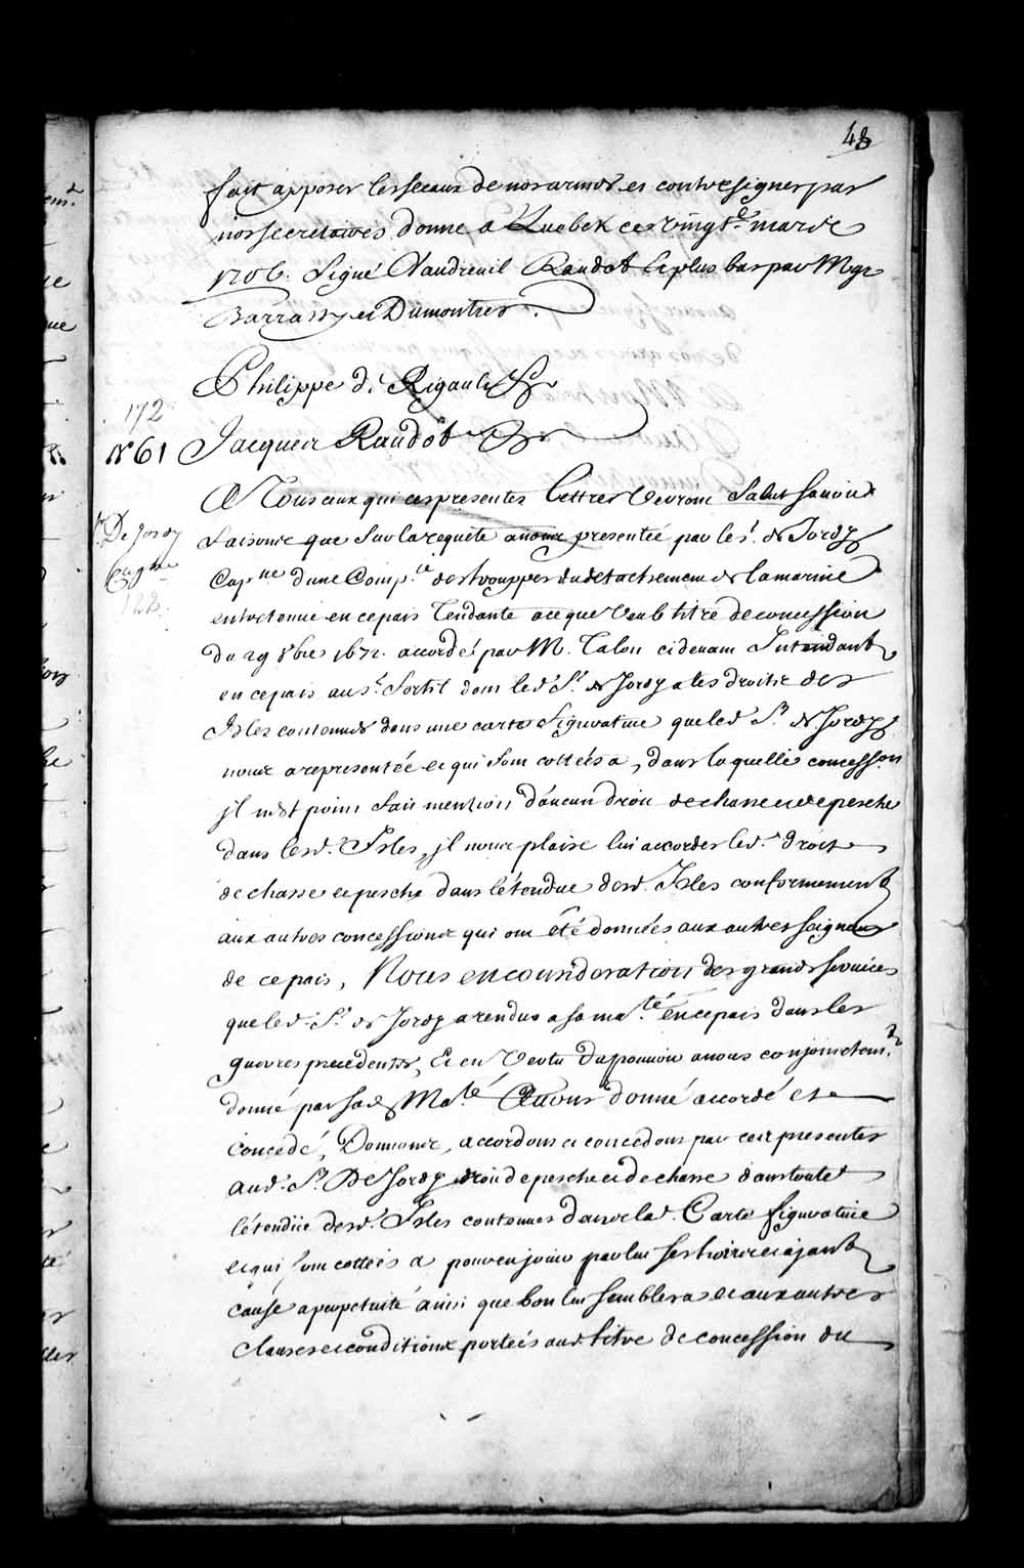 48
fait apposer les seceaux de nos armes et contresigner par
nos secretaires donne a Quebek ce vingt mars
1706. Signé Vaudreuil Raudot & plus bas par Mgrs
Barrassy et Dumontier.
Philippe de Rigault &c
172
N 61 Jacques Raudot &c
A Tous ceux qui ces presentes lettres verront Salut savoir
De Jordy
faisons que sur la requête a nous presentée par le sr. de Jordy
Capne
Capne d'une Compie des trouppes du detachement de la marine
122.
entretenue en ce pais tendante a ce que veu le titre de concession
du 29 8bre 1672. accordé par M. Talon cidevant Intendant
en ce pais au sr. Sortil dont led. Sr. de Jordy a les droits des
Isles contenues dans une carte figurative que led Sr. de Jordy
nous a representée et qui sont cottées a, dans laquelle concesson
il n'est point fait mention d'aucun droit de chasse et de pesche
dans lesd. Isles, il nous plaise lui accorder led. droit
de chasse et pesche dans l'étendue desd. Isles conformement
aux autres concessions qui ont été données aux autres seigneurs
de ce pais, Nous en consideration des grands services
que led. Sr. de Jordy a rendus a sa maté en ce pais dans les
guerres precedentes, Et en Vertu du pouvoir a nous conjointemt.
donné par sad Maté Avons donné accordé et
concedé, Donnons, accordons et concedons par ces presentes
aud. Sr. De Jordy droit de pesche et de chasse dans toute
l'étendüe desd. Isles contenues dans lad. Carte figurative
et qui sont cottées a pour en jouir par lui ses hoirs et ajant
cause a perpetuité ainsi que bon lui semblera et aux autres
clauses et conditions portées aud. titre de concession du